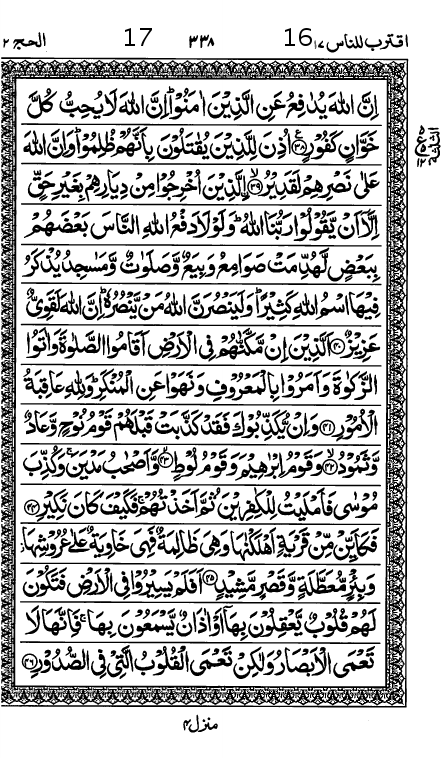 اقترب للناس ١٧ 16 ٣٣٨ 17 الحج ٢
اِنَّ اللّٰهَ يُدٰفِعُ عَنِ الَّذِيْنَ اٰمَنُوْا ؕ اِنَّ اللّٰهَ لَا يُحِبُّ كُلَّ
خَوَّانٍ كَفُوْرٍ ۧ ﴿٣٨﴾ اُذِنَ لِلَّذِيْنَ يُقٰتَلُوْنَ بِاَنَّهُمْ ظُلِمُوْا ؕ وَاِنَّ اللّٰهَ
عَلٰى نَصْرِهِمْ لَقَدِيْرُ ۙ ﴿٣٩﴾ اۨلَّذِيْنَ اُخْرِجُوْا مِنْ دِيَارِهِمْ بِغَيْرِ حَقٍّ
اِلَّاۤ اَنْ يَّقُوْلُوْا رَبُّنَا اللّٰهُ ؕ وَلَوْلَا دَفْعُ اللّٰهِ النَّاسَ بَعْضَهُمْ
بِبَعْضٍ لَّهُدِّمَتْ صَوَامِعُ وَبِيَعٌ وَّصَلَوٰتٌ وَّمَسٰجِدُ يُذْكَرُ
فِيْهَا اسْمُ اللّٰهِ كَثِيْرًا ؕ وَلَيَنْصُرَنَّ اللّٰهُ مَنْ يَّنْصُرُهٗ ؕ اِنَّ اللّٰهَ لَقَوِىٌّ
عَزِيْزٌ ﴿٤٠﴾ اَلَّذِيْنَ اِنْ مَّكَّنّٰهُمْ فِى الْاَرْضِ اَقَامُوا الصَّلٰوةَ وَاٰتَوُا
الزَّكٰوةَ وَاَمَرُوْا بِالْمَعْرُوْفِ وَنَهَوْا عَنِ الْمُنْكَرِ ؕ وَلِلّٰهِ عَاقِبَةُ
الْاُمُوْرِ ﴿٤١﴾ وَاِنْ يُّكَذِّبُوْكَ فَقَدْ كَذَّبَتْ قَبْلَهُمْ قَوْمُ نُوْحٍ وَّعَادٌ
وَّثَمُوْدُ ۙ ﴿٤٢﴾ وَقَوْمُ اِبْرٰهِيْمَ وَقَوْمُ لُوْطٍ ۙ ﴿٤٣﴾ وَّاَصْحٰبُ مَدْيَنَ ۚ وَكُذِّبَ
مُوْسٰى فَاَمْلَيْتُ لِلْكٰفِرِيْنَ ثُمَّ اَخَذْتُهُمْ ۚ فَكَيْفَ كَانَ نَكِيْرِ ﴿٤٤﴾
فَكَاَيِّنْ مِّنْ قَرْيَةٍ اَهْلَكْنٰهَا وَهِىَ ظَالِمَةٌ فَهِىَ خَاوِيَةٌ عَلٰى عُرُوْشِهَا
وَبِئْرٍ مُّعَطَّلَةٍ وَّقَصْرٍ مَّشِيْدٍ ﴿٤٥﴾ اَفَلَمْ يَسِيْرُوْا فِى الْاَرْضِ فَتَكُوْنَ
لَهُمْ قُلُوْبٌ يَّعْقِلُوْنَ بِهَاۤ اَوْ اٰذَانٌ يَّسْمَعُوْنَ بِهَا ۚ فَاِنَّهَا لَا
تَعْمَى الْاَبْصَارُ وَلٰكِنْ تَعْمَى الْقُلُوْبُ الَّتِىْ فِى الصُّدُوْرِ ﴿٤٦﴾
منزل ٤